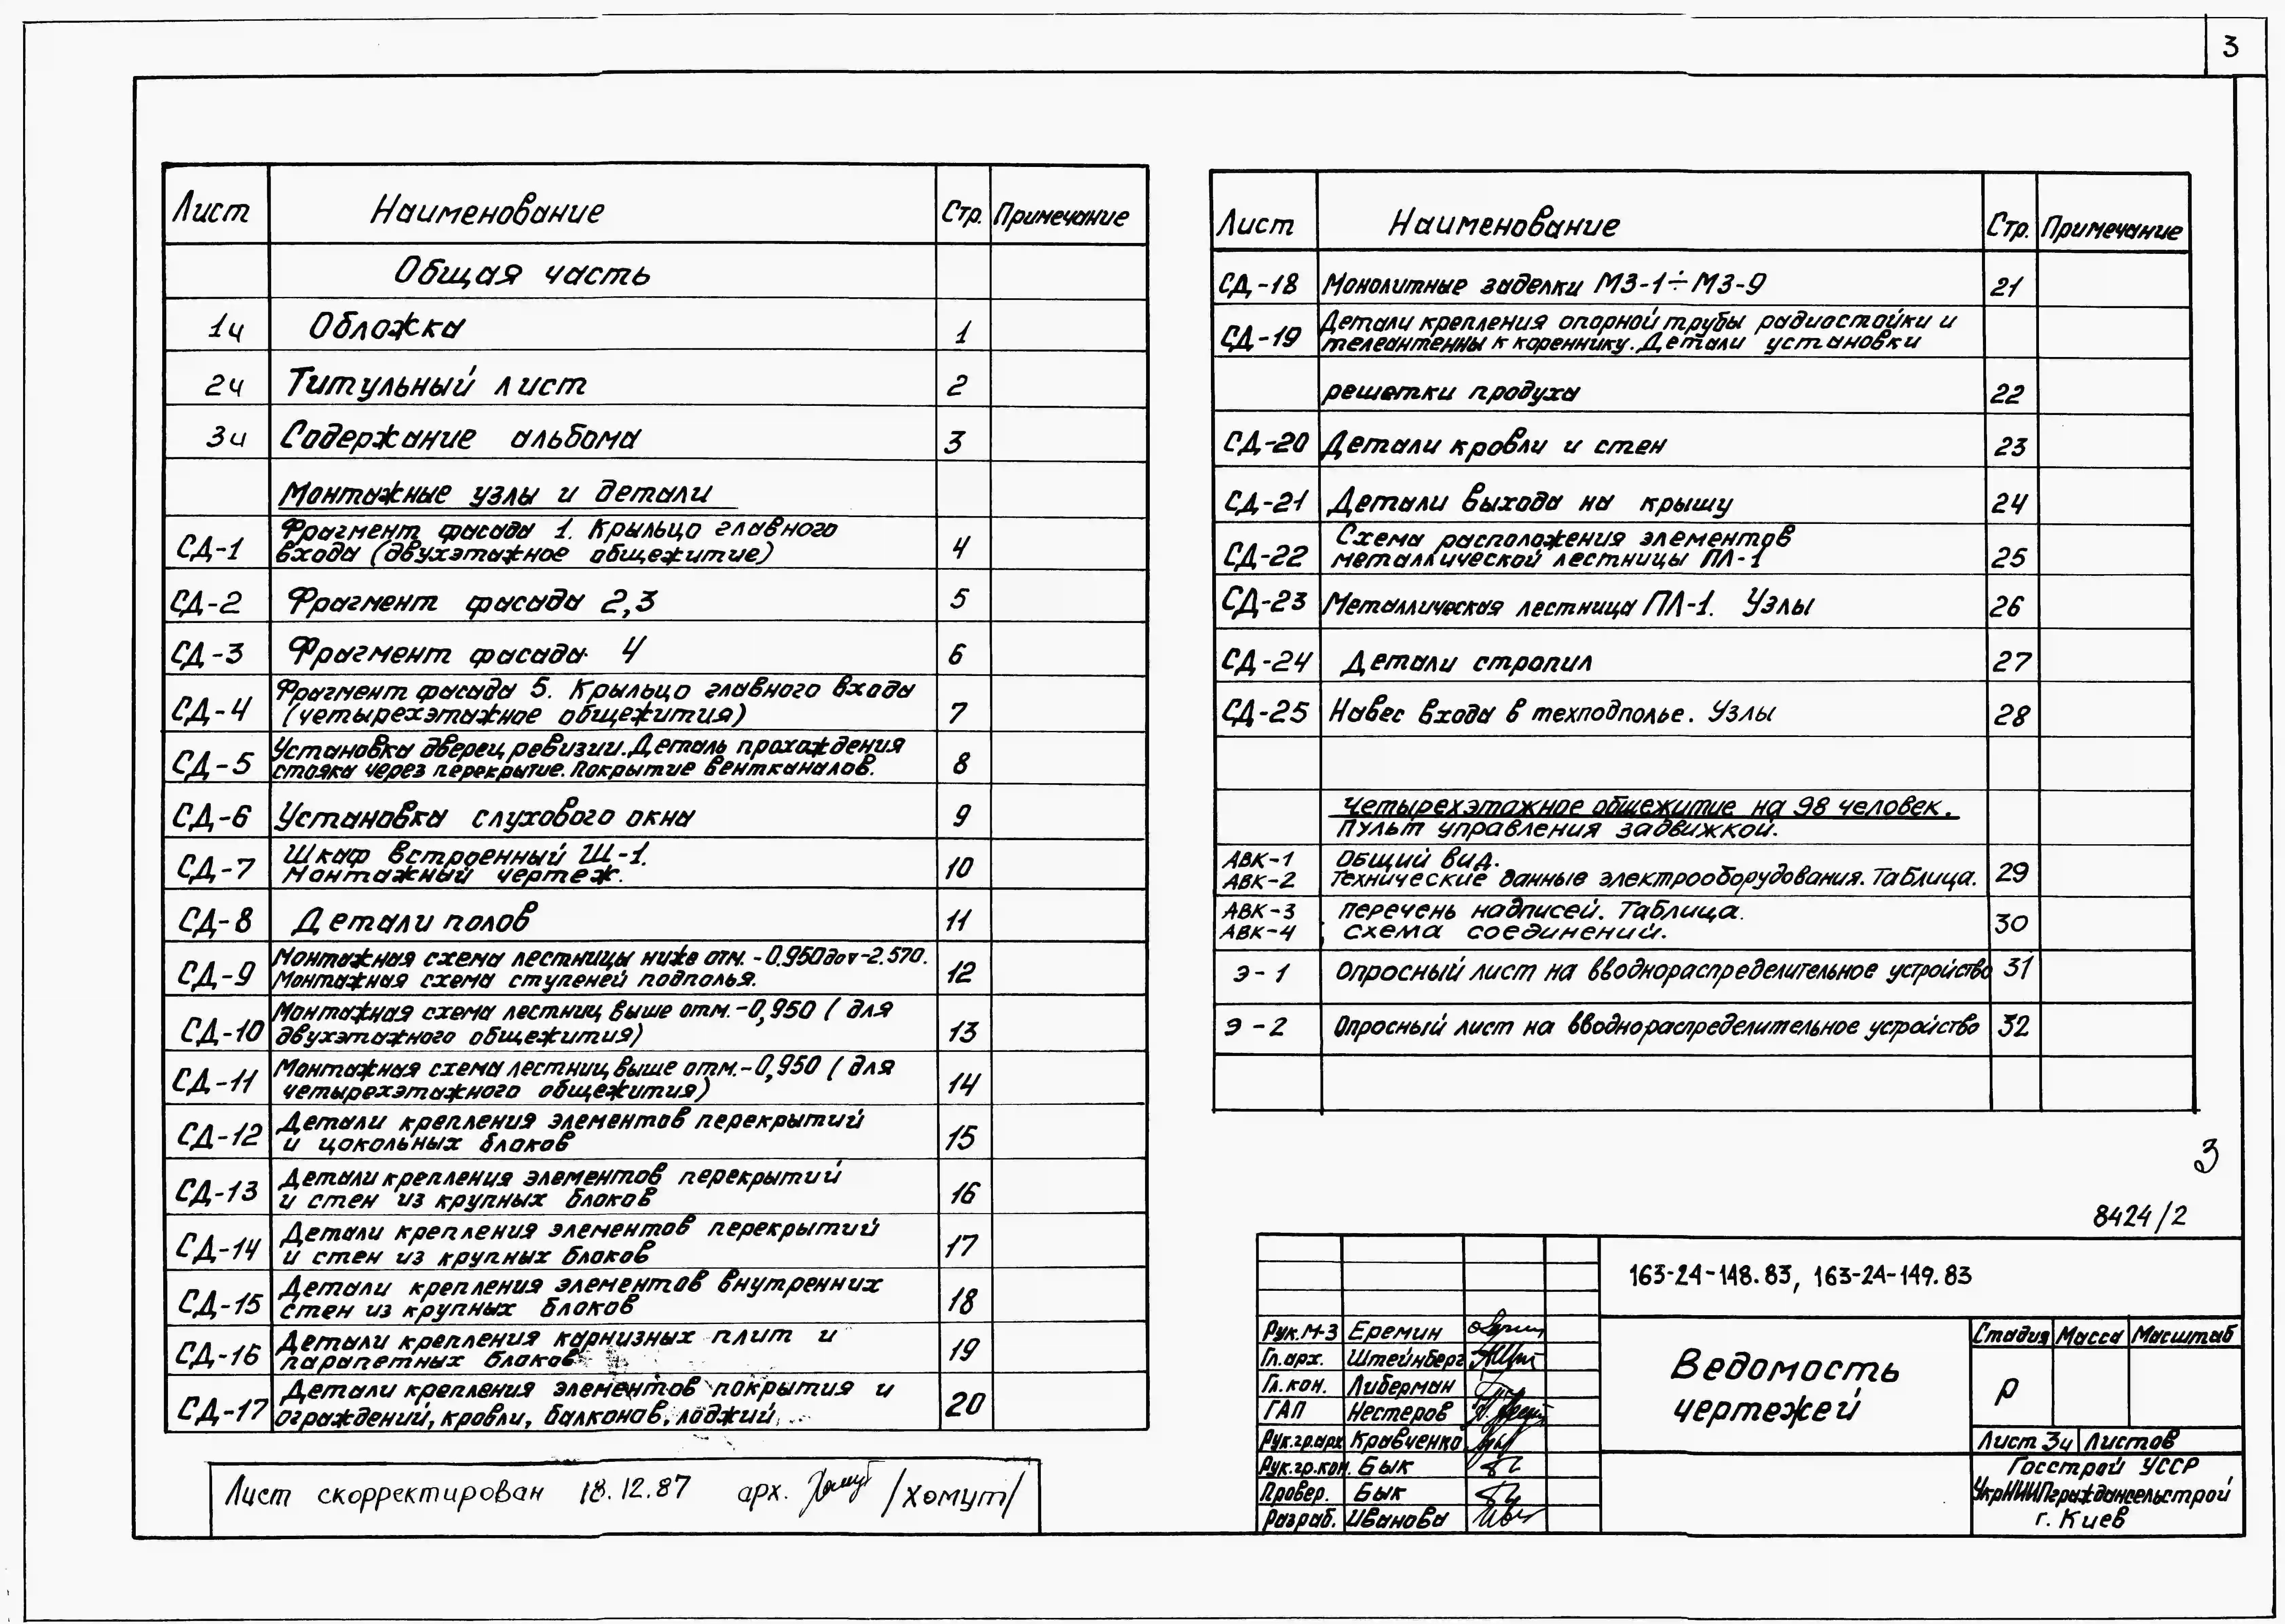 3
Лист Наименование Стр. Примечание
Общая часть
1ч Обложка 1
2ч Титульный лист 2
3ч Содержание альбома 3
Монтажные узлы и детали
СД-1 Фрагмент фасада 1. Крыльцо главного
входа (двухэтажное общежитие) 4
СД-2 Фрагмент фасада 2,3 5
СД-3 Фрагмент фасада 4 6
СД-4 Фрагмент фасада 5. Крыльцо главного входа
(четырехэтажное общежития) 7
СД-5 Установка дверец ревизии. Деталь прохождения
стояка через перекрытие. Покрытие вентканалов. 8
СД-6 Установка слухового окна 9
СД-7 Шкаф встроенный Ш-1.
Монтажный чертеж. 10
СД-8 Детали полов 11
СД-9 Монтажная схема лестницы ниже отм. -0.950 до -2.570.
Монтажная схема ступеней подполья. 12
СД-10 Монтажная схема лестниц выше отм. -0,950 (для
двухэтажного общежития) 13
СД-11 Монтажная схема лестниц выше отм. -0,950 (для
четырехэтажного общежития) 14
СД-12 Детали крепления элементов перекрытий
и цокольных блоков 15
СД-13 Детали крепления элементов перекрытий
и стен из крупных блоков 16
СД-14 Детали крепления элементов перекрытий
и стен из крупных блоков 17
СД-15 Детали крепления элементов внутренних
стен из крупных блоков 18
СД-16 Детали крепления карнизных плит и
парапетных блоков 19
СД-17 Детали крепления элементов покрытия и
ограждений, кровли, балконов, лоджий 20
Лист скорректирован 18.12.87 арх. /Хомут/
Лист Наименование Стр. Примечание
СД-18 Монолитные заделки МЗ-1÷МЗ-9 21
СД-19 Детали крепления опорной трубы радиостойки и
телеантенны к кореннику. Детали установки
решетки продуха 22
СД-20 Детали кровли и стен 23
СД-21 Детали выхода на крышу 24
СД-22 Схема расположения элементов
металлической лестницы ПЛ-1 25
СД-23 Металлическая лестница ПЛ-1. Узлы 26
СД-24 Детали стропил 27
СД-25 Навес входа в техподполье. Узлы 28
Четырехэтажное общежитие на 98 человек.
Пульт управления задвижкой.
АВК-1 Общий вид.
АВК-2 Технические данные электрооборудования. Таблица. 29
АВК-3 Перечень надписей. Таблица.
АВК-4 Схема соединений. 30
Э-1 Опросный лист на вводнораспределительное устройство 31
Э-2 Опросный лист на вводнораспределительное устройство 32
3
8424/2
163-24-148.83, 163-24-149.83
Рук.М-3 Еремин
Гл.арх. Штейнберг
Гл.кон. Либерман
ГАП Нестеров
Рук.гр.арх Кравченко
Рук.гр.кон. Бык
Провер. Бык
Разраб. Иванова
Ведомость
чертежей
Стадия Масса Масштаб
Р
Лист 3ч Листов
Госстрой УССР
УкрНИИПграждансельстрой
г. Киев